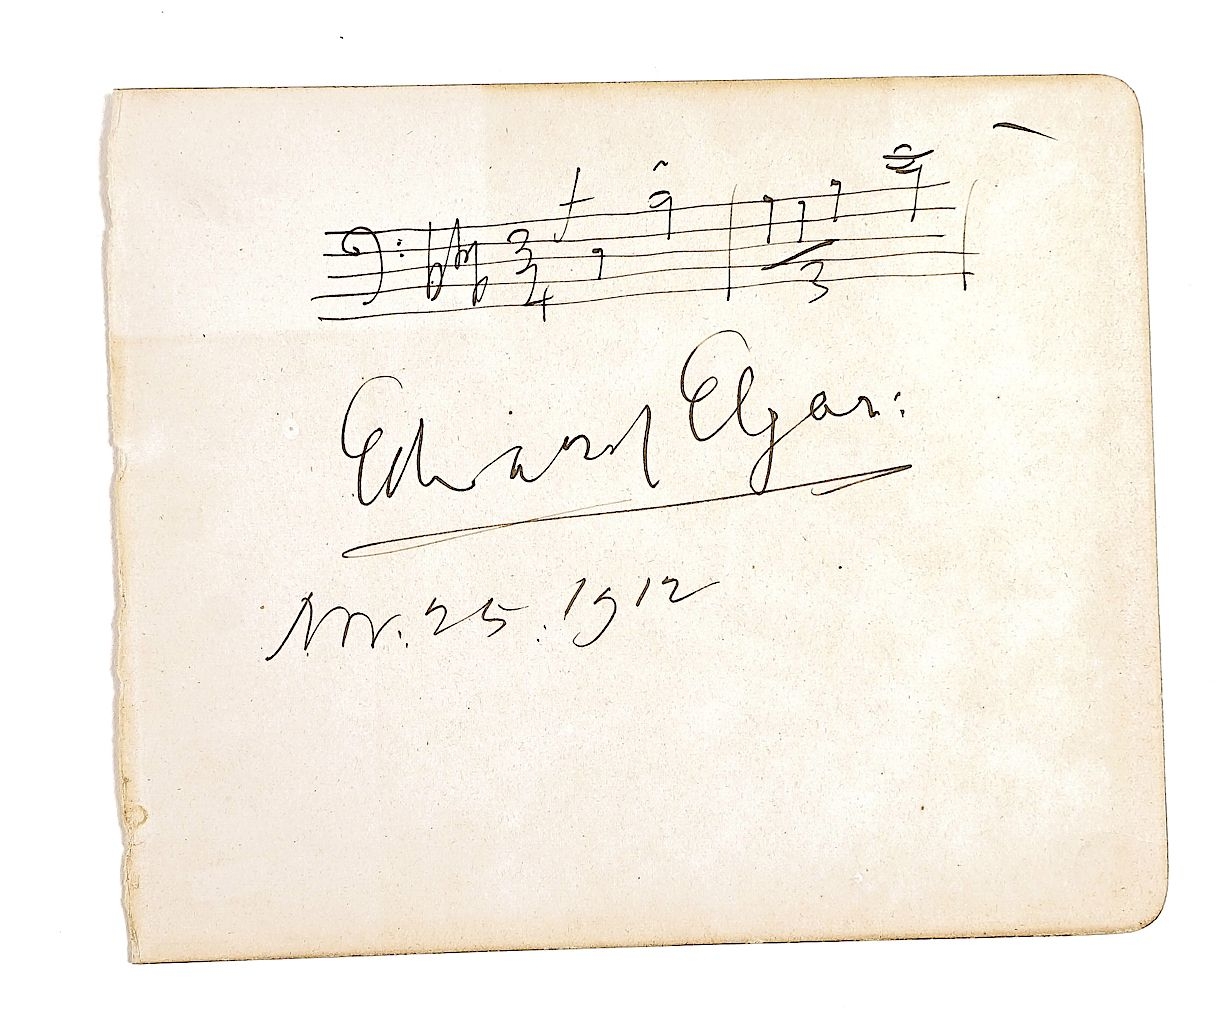 f
3
4
3
Edward Elgar:
Nov. 25. 1912